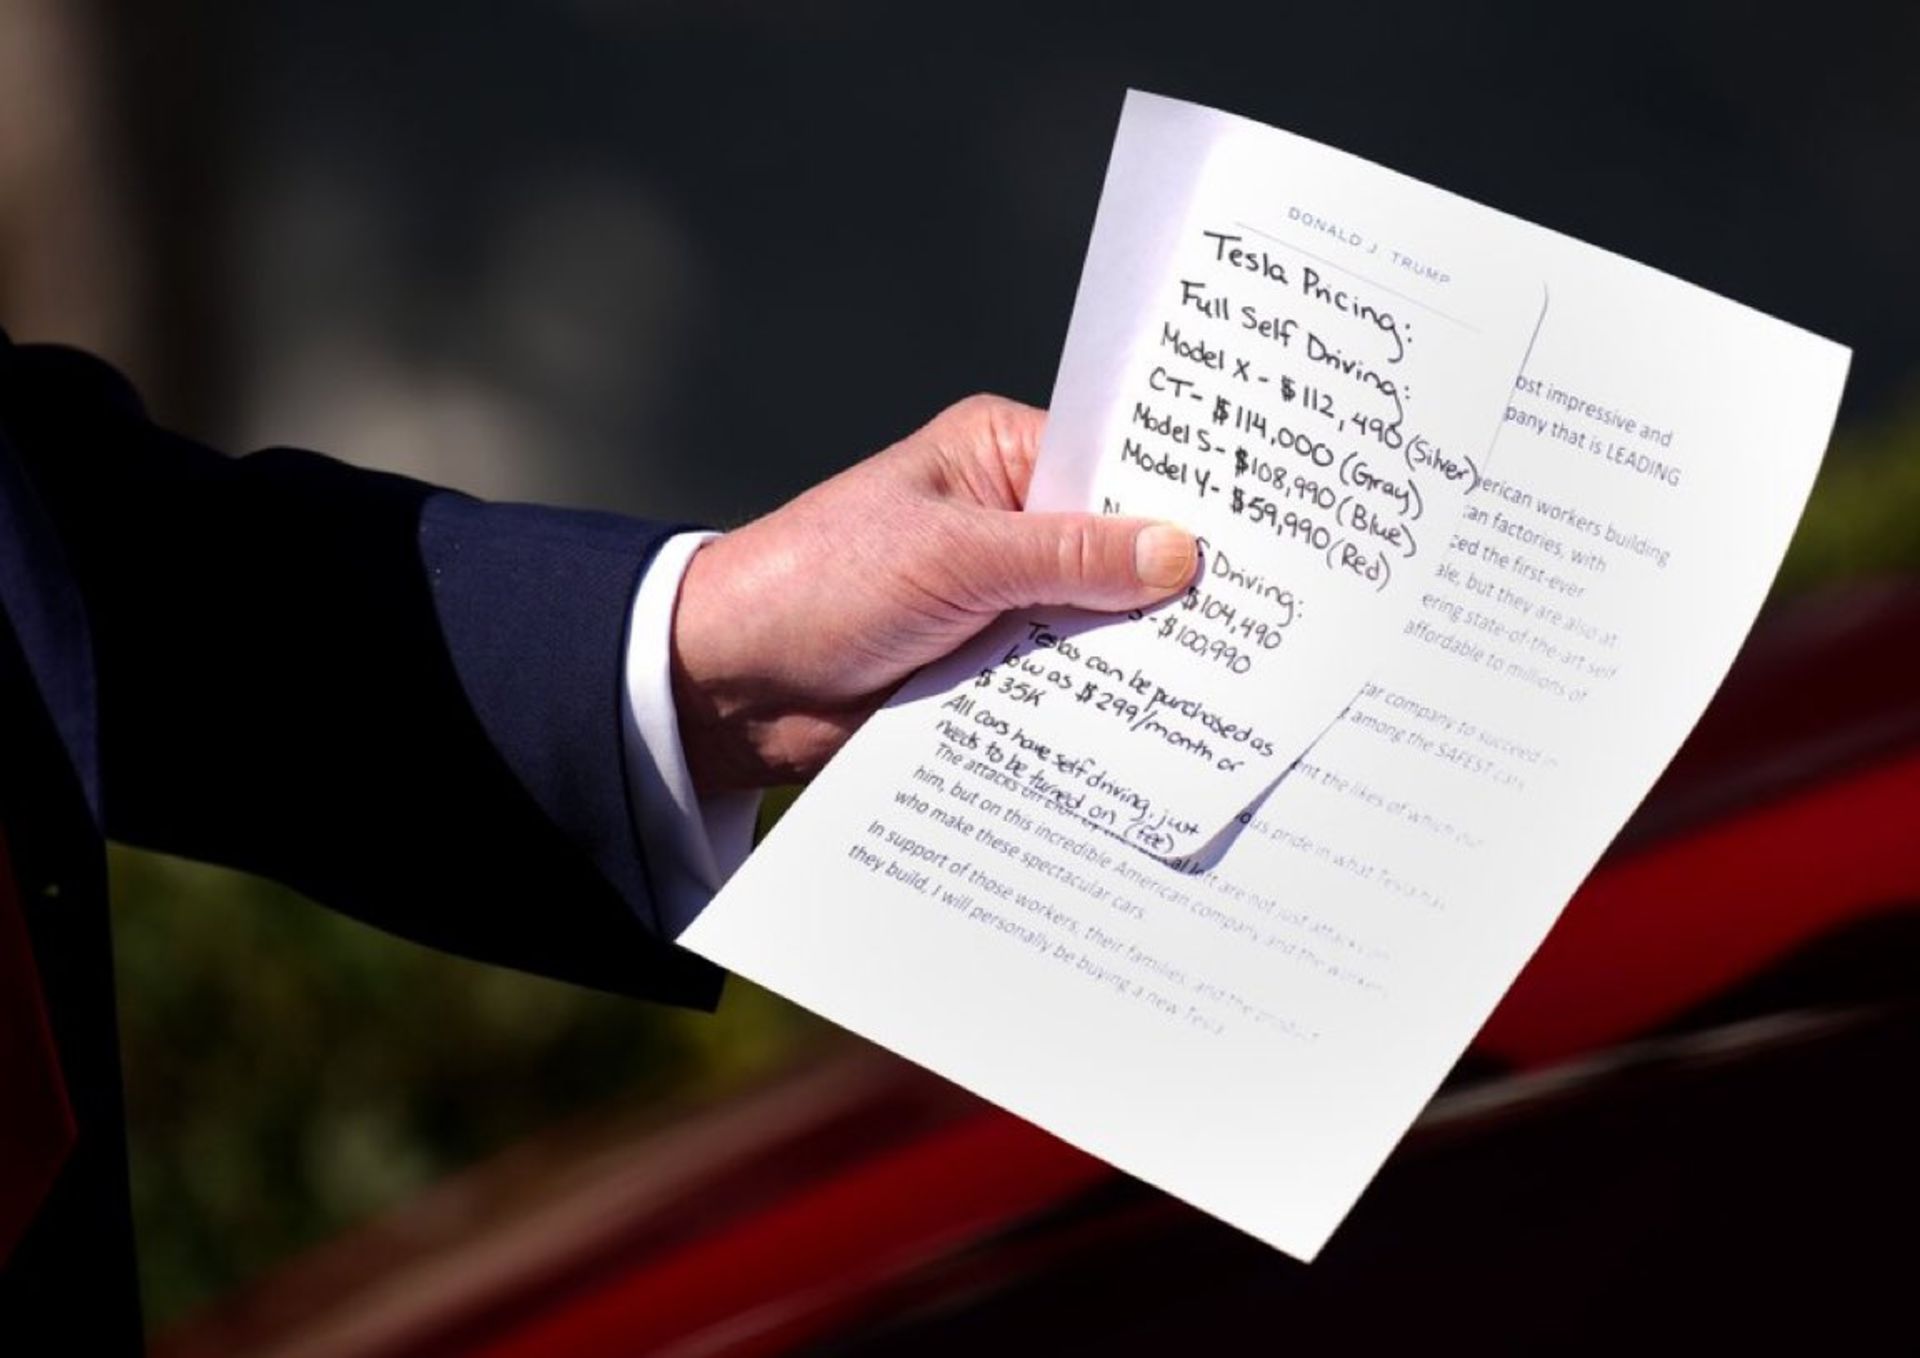 DONALD J. TRUMP
Tesla Pricing:
Full Self Driving:
Model X - $112,490 (Silver)
CT- $114,000 (Gray)
Model S- $108,990 (Blue)
Model Y- $59,990 (Red)
Driving:
$104,490
- $100,990
Teslas can be purchased as
low as $299/month or
$35K
All cars have self driving, just
needs to be turned on (fee)
ost impressive and
pany that is LEADING
erican workers building
an factories, with
ced the first-ever
ale, but they are also at
ering state-of-the-art self
affordable to millions of
car company to succeed in
among the SAFEST cars
ent the likes of which our
ous pride in what Tesla has
The attacks on left are not just attacks on
him, but on this incredible American company and the workers
who make these spectacular cars.
In support of those workers, their families, and the product
they build, I will personally be buying a new Tesla